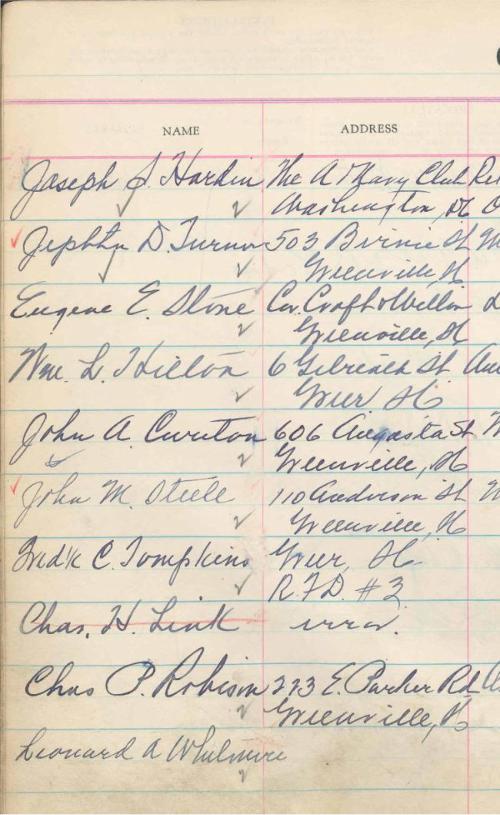 NAME ADDRESS
Joseph J. Hardin The A & Navy Club
Washington, DC
Jephtha D. Turner 503 Birnie St
Greenville, SC
Eugene E. Stone Cor. Croft &
Greenville, SC
Wm. L. Hilton 6 St
Greer SC
John A. Cureton 606 Augusta St
Greenville, SC
John M. Steele 110 Anderson St
Greenville, SC
Fred'k C. Tompkins Greer, SC
R.F.D. #3
Chas. H. Link error.
Chas P. Robison 223 E. Parker Rd
Greenville, SC
Leonard A Whitmire